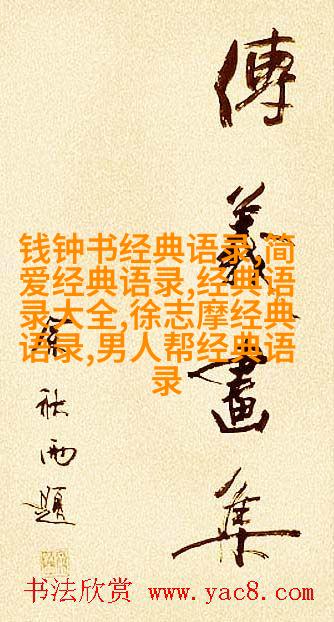 傅義畫集
雨題
钱钟书经典语录,简
爱经典语录,经典语
录大全,徐志摩经典
语录,男人帮经典语
录
书法欣赏 www.yac8.com